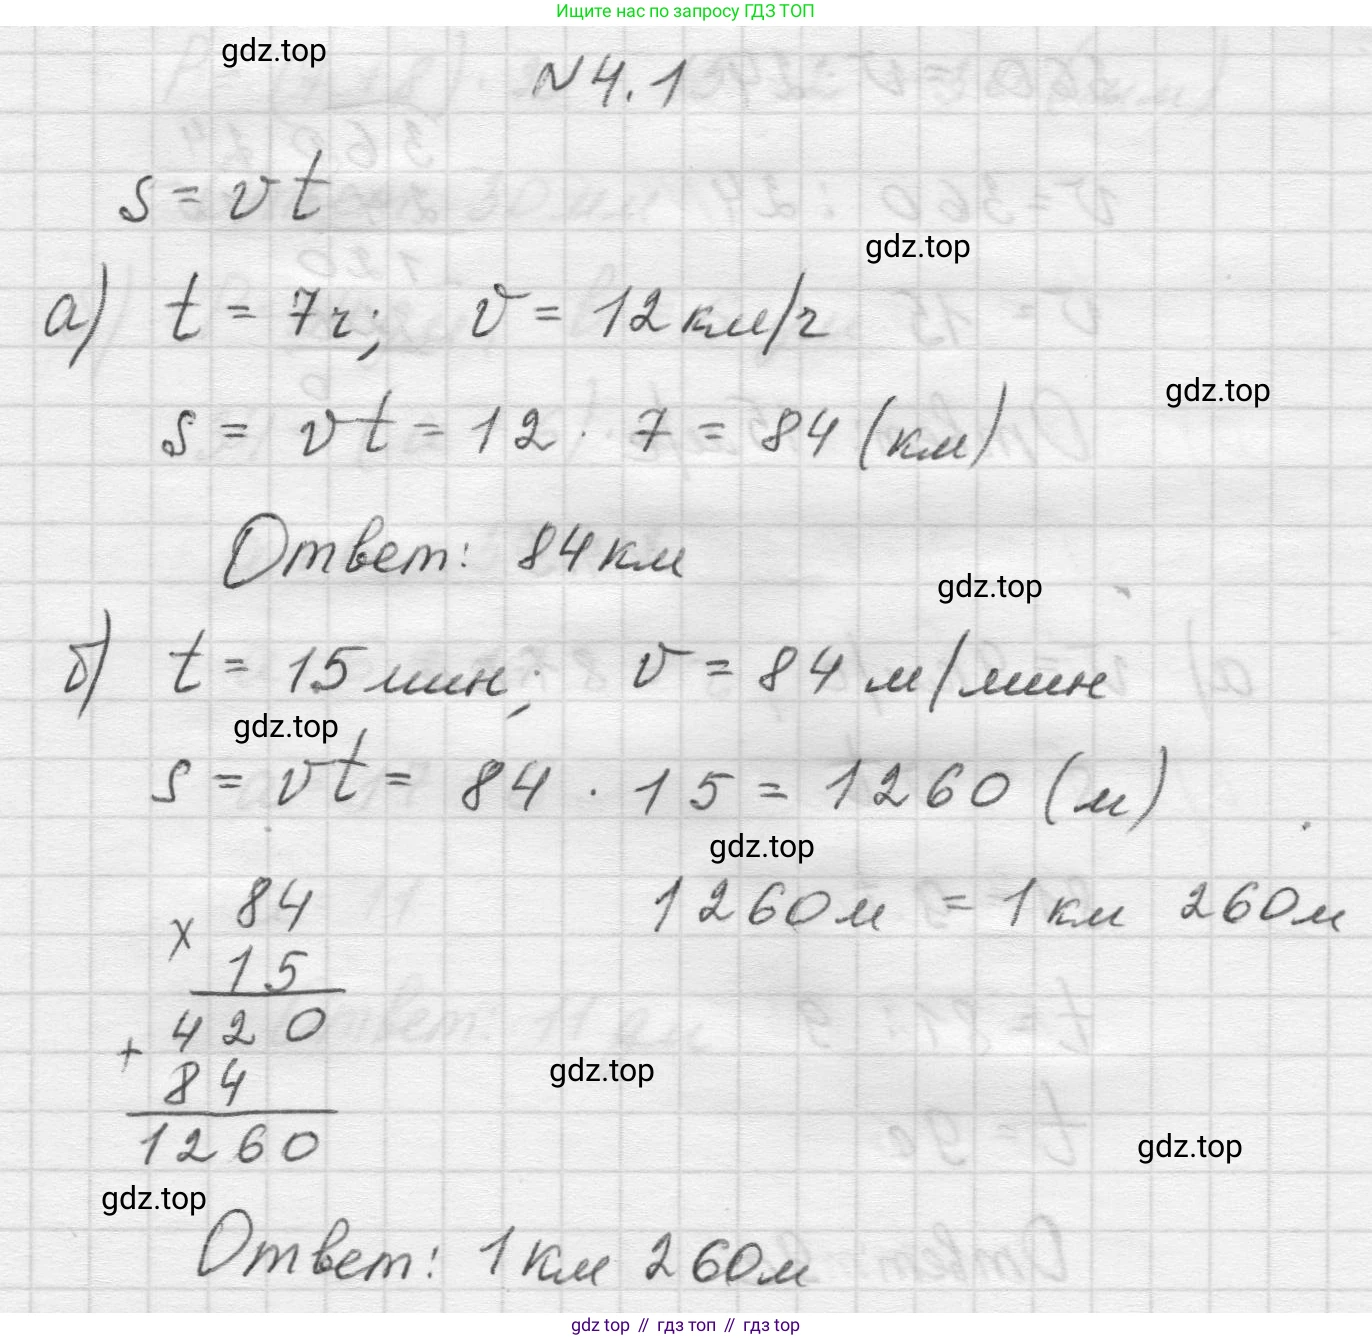 Ищите нас по запросу ГДЗ ТОП
gdz.top
№4.1
s = vt
gdz.top
а) t = 7ч; v = 12 км/ч
gdz.top
s = vt = 12 · 7 = 84 (км)
Ответ: 84 км
gdz.top
б) t = 15 мин; v = 84 м/мин
gdz.top
s = vt = 84 · 15 = 1260 (м)
gdz.top
84
1260м = 1 км 260м
×
15
420
+
gdz.top
84
1260
gdz.top
gdz.top
Ответ: 1 км 260м
gdz top // гдз топ // gdz top